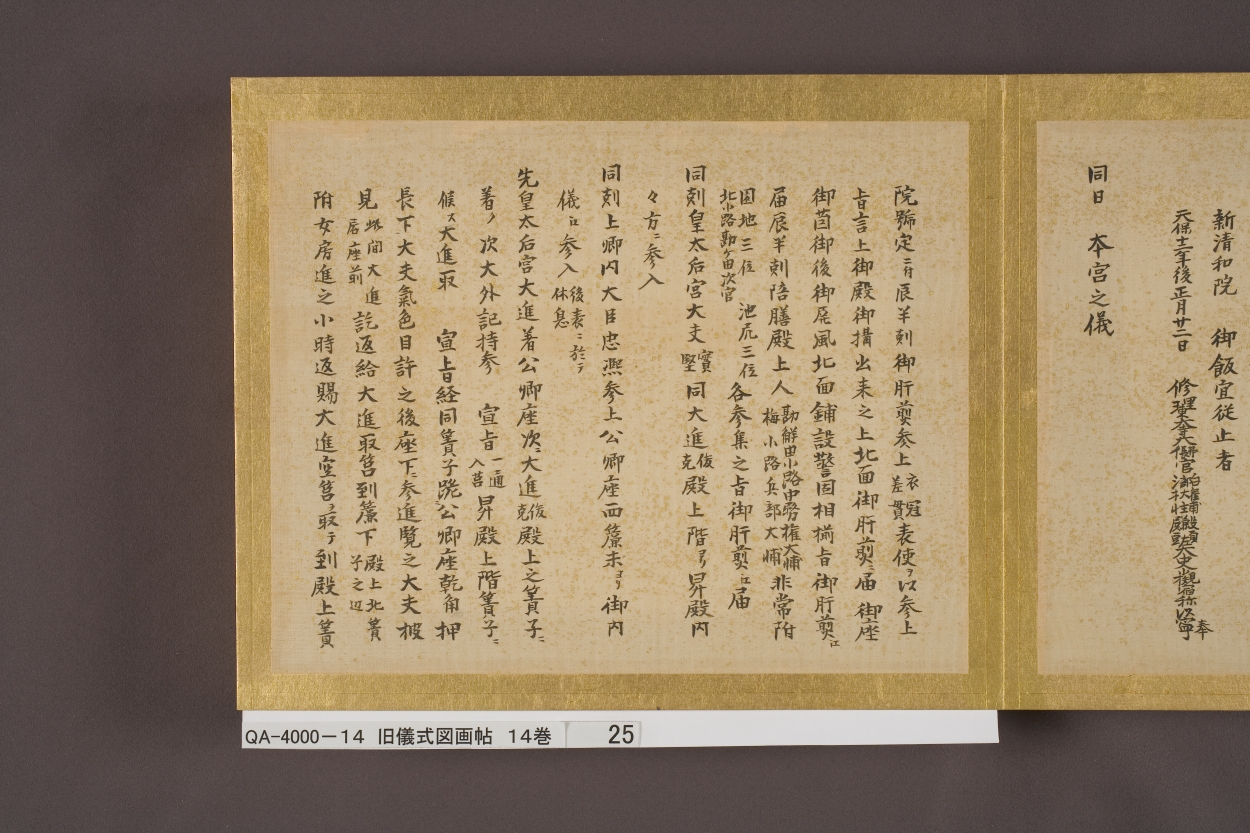 新清和院 御飯宜従止者
天保十二年後正月廿二日 修理
奉
同日 本宮之儀
院號定ニ付辰半刻御肝煎参上衣冠差貫表使ヲ以参上
旨言上御殿御搆出来之上北面御肝煎ニ届 御座
御茵御後御屏風北面鋪設警固相揃旨御肝煎江
届辰半刻陪膳殿上人勘解由小路中務権大輔梅小路兵部大輔非常附
園池三位 池尻三位
北小路勘ヶ由次官
各参集之旨御肝煎江届
同刻皇太后宮大夫實堅同大進俊克殿上階ヨリ昇殿内
々方ニ参入
同刻上卿内大臣忠熈参上公卿座西簾未ヨリ御内
儀江参入後表ニ於テ休息
先皇太后宮大進着公卿座次ニ大進俊克殿上之簀子ニ
着ノ次大外記持参 宣旨一通入筥昇殿上階簀子ニ
候ス大進取 宣旨経同簀子跪公卿座乾角押
長下大夫氣色目許之後座下ニ参進覧之大夫披
見此間大進居座前訖返給大進取筥到簾下殿上北簀子之辺
附女房進之小時返賜大進空筥ヲ取テ到殿上簀
QA-4000-14 旧儀式図画帖 14巻 25